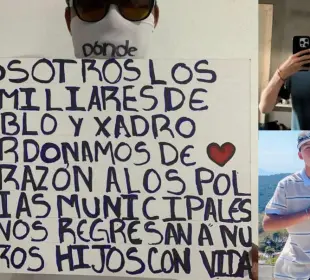 DÓNDE
OSOTROS LOS
MILIARES DE
BLO Y XADRO
RDONAMOS DE
RAZÓN A LOS POL
IAS MUNICIPALES
NOS REGRESAN A NU
ROS HIJOS CON VIDA